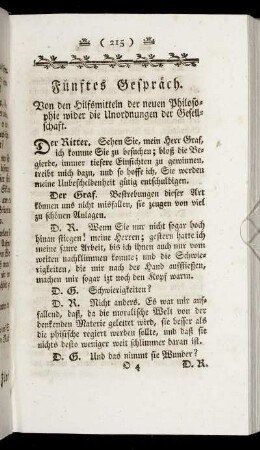 ( 215 )
Fünftes Gespräch.
Von den Hilfsmitteln der neuen Philoso-
phie wider die Unordnungen der Gesell-
schaft.
Der Ritter. Sehen Sie, mein Herr Graf,
ich komme Sie zu besuchen; bloß die Be-
gierde, immer tiefere Einsichten zu gewinnen,
treibt mich dazu, und so hoffe ich, Sie werden
meine Unbescheidenheit gütig entschuldigen.
Der Graf. Bestrebungen dieser Art
können uns nicht misfallen, sie zeugen von viel
zu schönen Anlagen.
D. R. Wenn Sie nur nicht sogar hoch
hinan stiegen! meine Herren; gestern hatte ich
meine saure Arbeit, bis ich Ihnen auch nur vom
weiten nachklimmen konnte; und die Schwie-
rigkeiten, die mir nach der Hand aufstießen,
machen mir sogar izt noch den Kopf warm.
D. G. Schwierigkeiten?
D. R. Nicht anders. Es war mir auf-
fallend, daß, da die moralische Welt von der
denkenden Materie geleitet wird, sie besser als
die phisische regiert werden sollte, und daß sie
nichts desto weniger weit schlimmer daran ist.
D. G. Und das nimmt sie Wunder?
O 4 D. R.